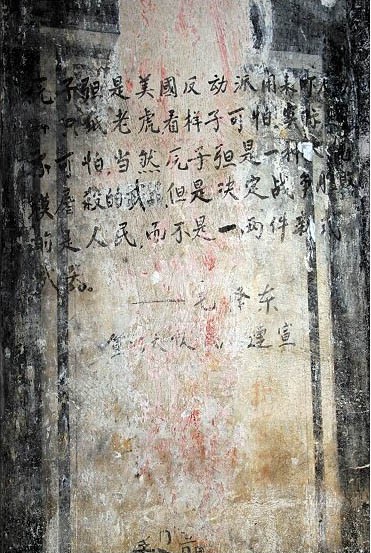 子弹是美國反动派用来吓
紙老虎看样子可怕,实际
不可怕,当然子弹是一种
模屠殺的武器,但是决定战争胜
是人民,而不是一两件新式
武器。
——毛泽东
大队 連宣